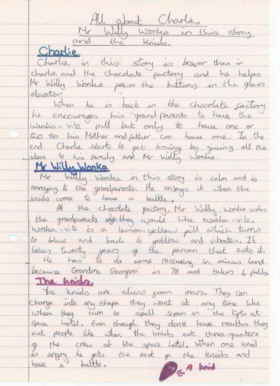 All about Charlie,
Mr Willy Wonka in this story
and the Knids.
Charlie
Charlie in this story is braver than in
charlie and the chocolate factory and he helps
Mr Willy Wonka press the buttons in the glass
elevator.
When he is back in the chocolate factory
he encourages his grandparents to have the
Wonka-vite pill but only to have one or
two so his Mother and father can have one. In the
end Charlie starts to get annoyed by giving all the
ideas to his family and Mr Willy Wonka.
Mr Willy Wonka
Mr Willy Wonka in this story is calm and is
annoying to the grandparents. He enjoys it when the
knids come to have a battle.
At the chocolate factory Mr Willy Wonka makes
the grandparents
wonka-vite is a lemon-yellow pill which turns
to blue and back to
twenty years of the person that ate it.
He has to do some rescuing in minus land
because Grandma Georgina is 78 and takes 4 pills
The knids.
The knids are aliens from mars. They can
change into any shape they want at any time like
when they turn to spell scram in the lifts at
space hotel. Even though they don't have mouths they
eat people like when the knids eat three-quarters
of the crew at the space hotel. When one knid
is angry he gets the rest of the knids and
have a battle.
A knid